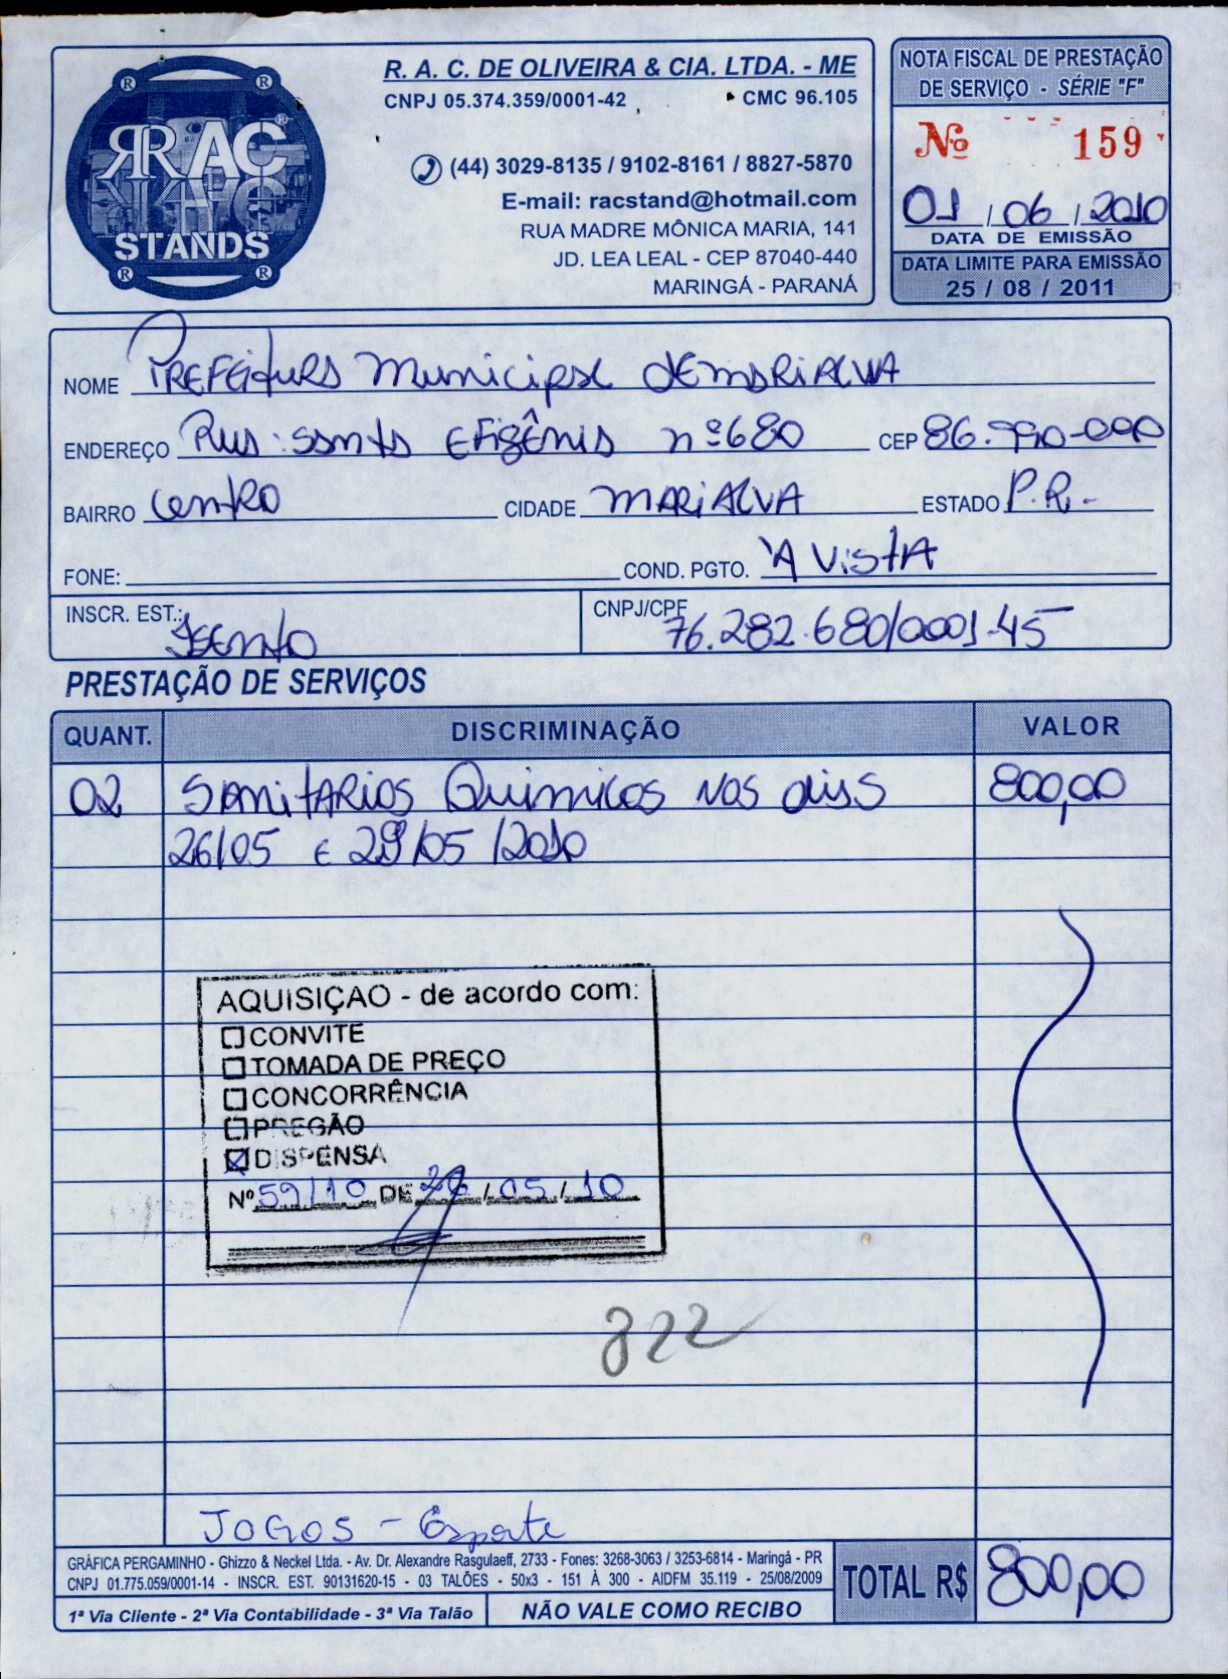 R. A. C. DE OLIVEIRA & CIA. LTDA. - ME
CNPJ 05.374.359/0001-42 CMC 96.105
(44) 3029-8135 / 9102-8161 / 8827-5870
E-mail: racstand@hotmail.com
RUA MADRE MÔNICA MARIA, 141
JD. LEA LEAL - CEP 87040-440
MARINGÁ - PARANÁ
RRAC
STANDS
NOTA FISCAL DE PRESTAÇÃO
DE SERVIÇO - SÉRIE "F"
Nº 159
01 / 06 / 2010
DATA DE EMISSÃO
DATA LIMITE PARA EMISSÃO
25 / 08 / 2011
NOME PREFEitura Municipal dE mARiALVA
ENDEREÇO Rua: Santa EFigênia nº 680 CEP 86.990-000
BAIRRO Centro CIDADE MARiALVA ESTADO P.R.-
FONE: COND. PGTO. 'A VistA
INSCR. EST.: Isento CNPJ/CPF 76.282.680/0001-45
PRESTAÇÃO DE SERVIÇOS
QUANT. DISCRIMINAÇÃO VALOR
02 SANitARios Quimicos nos dias 800,00
26/05 e 29/05/2010
AQUISIÇAO - de acordo com:
CONVITE
TOMADA DE PREÇO
CONCORRÊNCIA
PREGÃO
DISPENSA
Nº 59/10 DE 26/05/10
822
JOGOS - Esporte
GRÁFICA PERGAMINHO - Ghizzo & Neckel Ltda. - Av. Dr. Alexandre Rasgulaeff, 2733 - Fones: 3268-3063 / 3253-6814 - Maringá - PR
CNPJ 01.775.059/0001-14 - INSCR. EST. 90131620-15 - 03 TALÕES - 50x3 - 151 À 300 - AIDFM 35.119 - 25/08/2009
TOTAL R$ 800,00
1ª Via Cliente - 2ª Via Contabilidade - 3ª Via Talão NÃO VALE COMO RECIBO